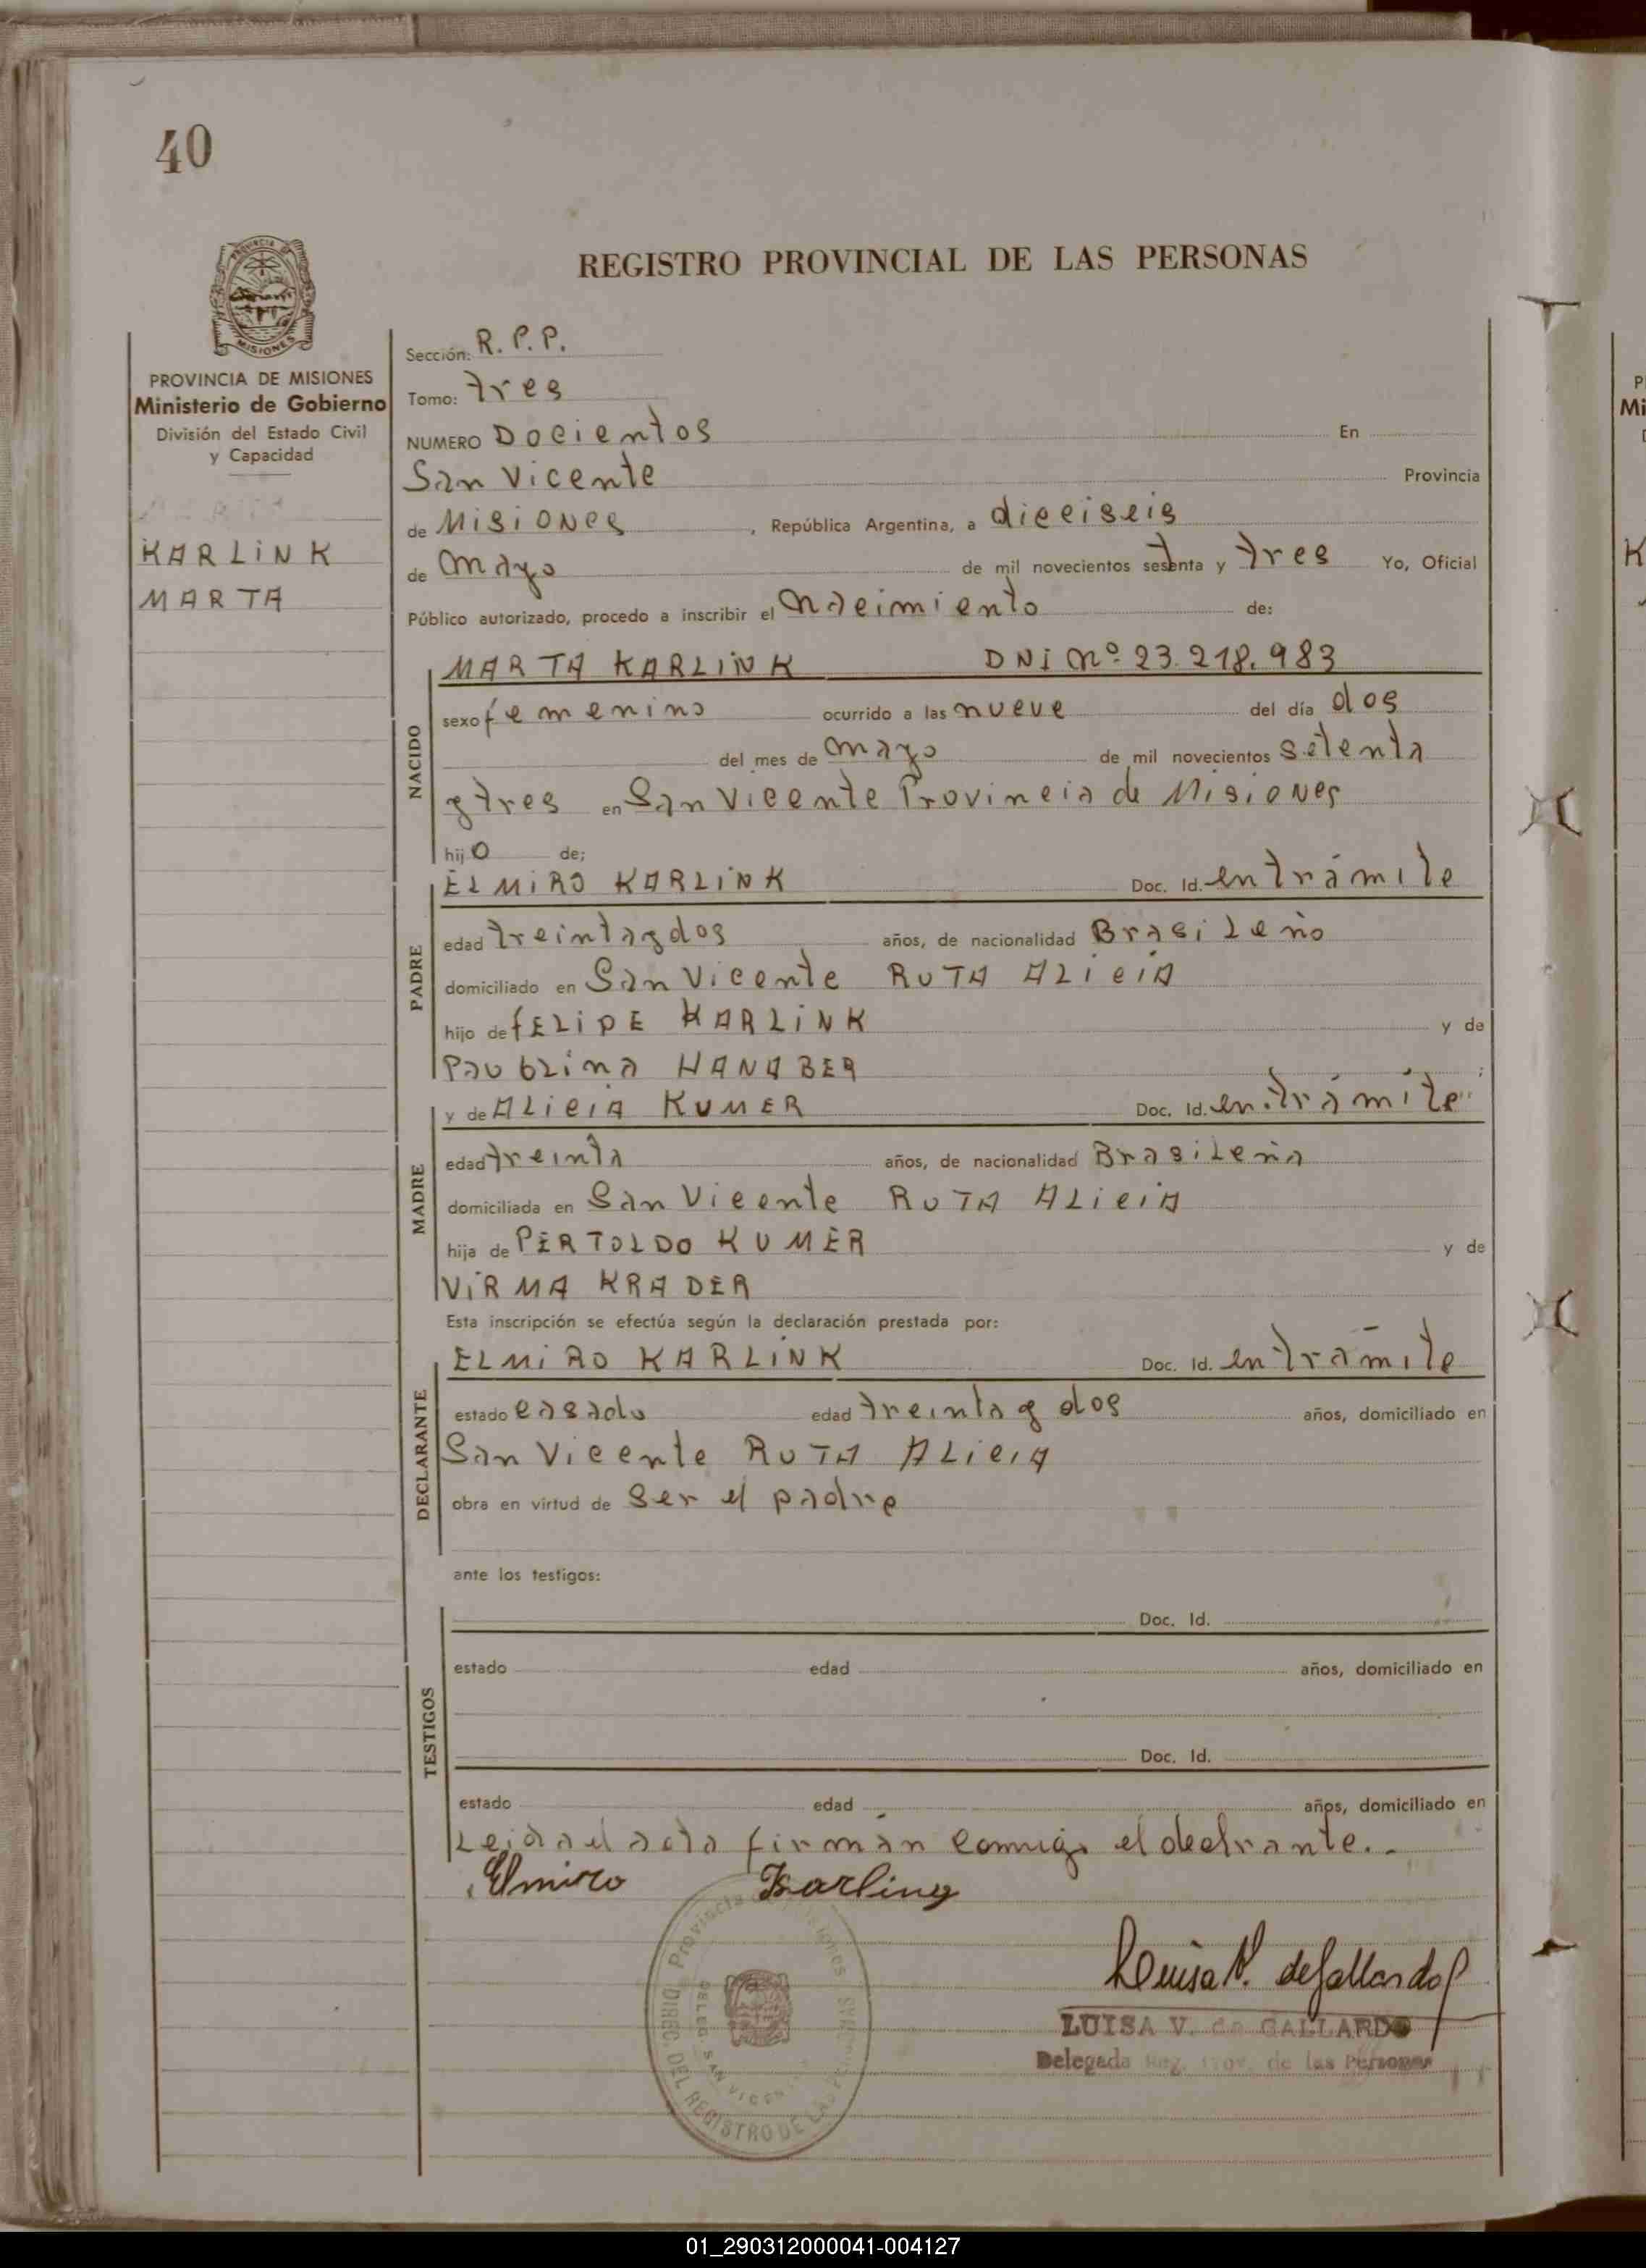 40
REGISTRO PROVINCIAL DE LAS PERSONAS
PROVINCIA
MISIONES
PROVINCIA DE MISIONES
Ministerio de Gobierno
División del Estado Civil
y Capacidad
KARLINK
MARTA
Sección: R. P. P.
Tomo: tres
NUMERO Docientos En
San Vicente Provincia
de Misiones, República Argentina, a dieciseis
de mayo de mil novecientos setenta y tres Yo, Oficial
Público autorizado, procedo a inscribir el nacimiento de:
NACIDO
MARTA KARLINK DNI Nº 23.218.983
sexo femenino ocurrido a las nueve del día dos
del mes de mayo de mil novecientos setenta
y tres en San Vicente Provincia de Misiones
hijo de;
PADRE
ELMIRO KARLINK Doc. Id. en trámite
edad treinta y dos años, de nacionalidad Brasileño
domiciliado en San Vicente RUTA ALICIA
hijo de FELIPE KARLINK y de
HANABER
MADRE
y de ALICIA KUMER Doc. Id. en trámite
edad treinta años, de nacionalidad Brasileña
domiciliada en San Vicente RUTA ALICIA
hija de PERTOLDO KUMER y de
VIRMA KRADER
Esta inscripción se efectúa según la declaración prestada por:
DECLARANTE
ELMIRO KARLINK Doc. Id. en trámite
estado casado edad treinta y dos años, domiciliado en
San Vicente RUTA ALICIA
obra en virtud de Ser el padre
ante los testigos:
TESTIGOS
Doc. Id.
estado edad años, domiciliado en
Doc. Id.
estado edad años, domiciliado en
Leida el acta firman conmigo el declrante..
Elmiro Karling
Luisa V. de Gallardo
LUISA V. de GALLARDO
Delegada Reg. Prov. de las Personas
Provincia de Misiones
DIREC. DEL REGISTRO DE LAS PERSONAS
DELEG. SAN VICENTE
01_290312000041-004127